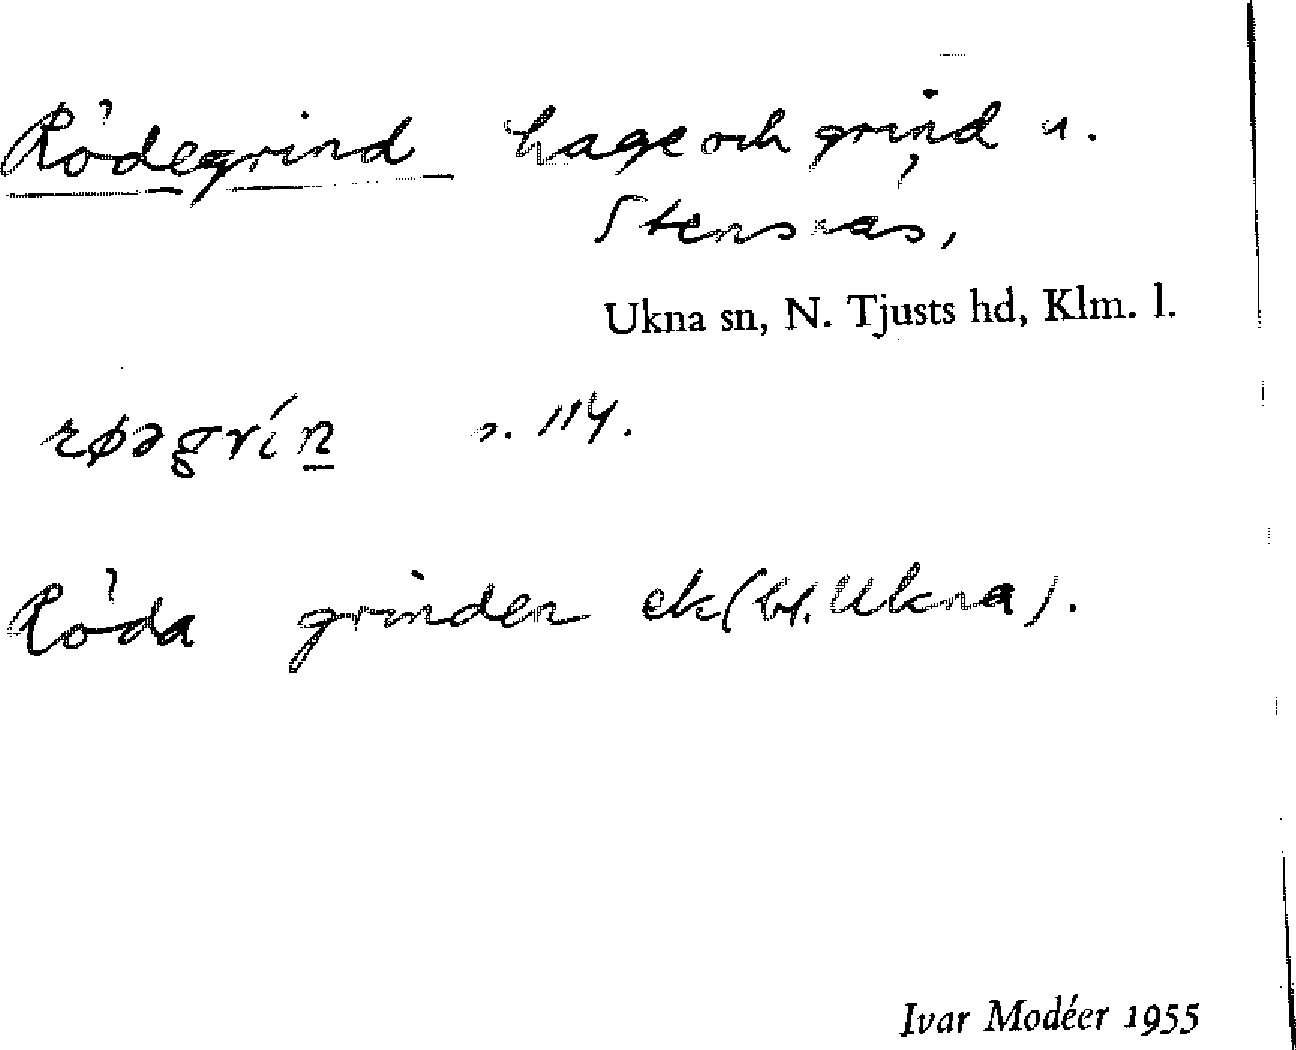 Rödegrind hage och grind u.
Stensnäs,
Ukna sn, N. Tjusts hd, Klm. l.
røəgrín s. 114.
Röda grinden ek (bl. Ukna).
Ivar Modéer 1955